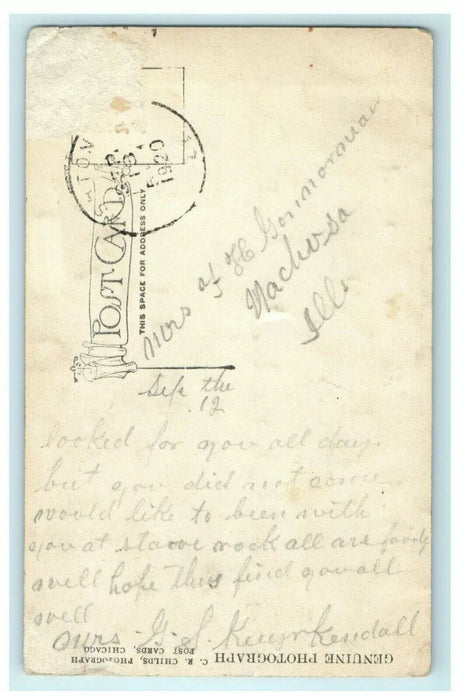 1920
POST CARD
THIS SPACE FOR ADDRESS ONLY
Mrs
Nachusa
Ills
Sep the
12
looked for you all day
but you did not come
would like to been with
you at starve rock all are fairly
well hope this find you all
well
Mrs G. S. Kuyrkendall
GENUINE PHOTOGRAPH C. R. CHILDS, PHOTOGRAPH
POST CARDS, CHICAGO